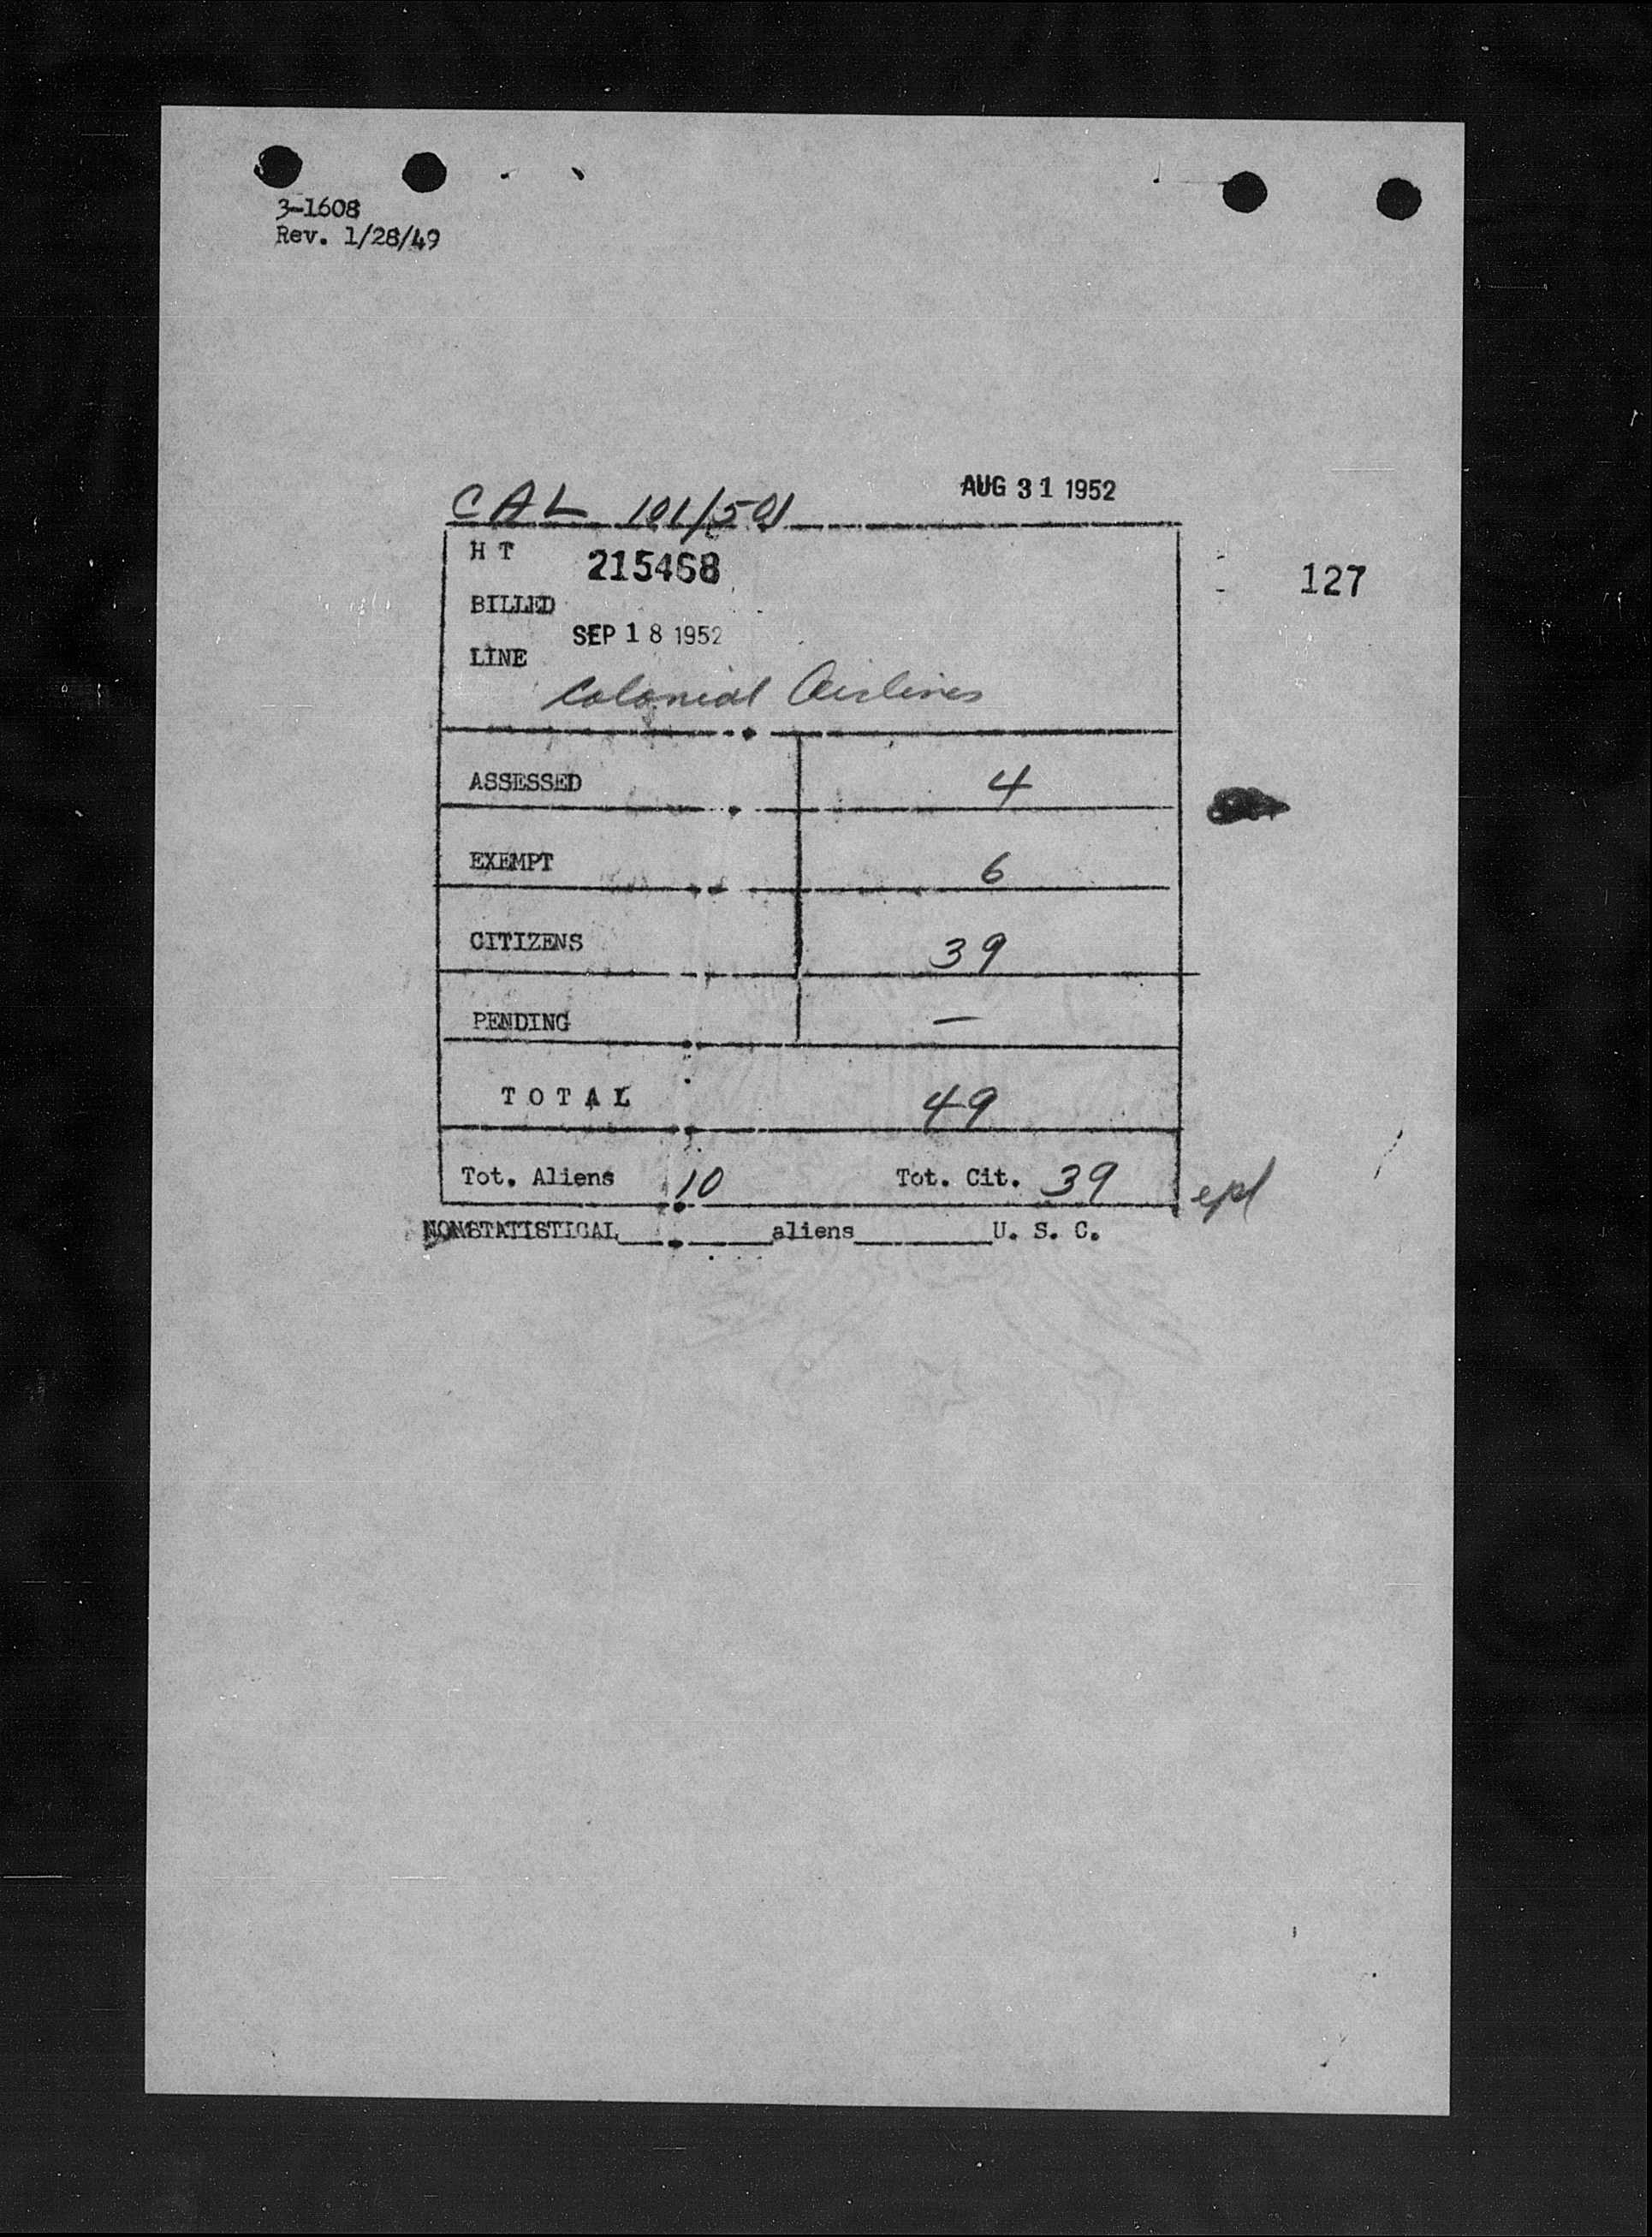 3-1608
Rev. 1/28/49
CAL 101/501 AUG 31 1952
H T 215468
127
BILLED
SEP 18 1952
LINE
Colonial Airlines
ASSESSED 4
EXEMPT 6
CITIZENS 39
PENDING —
T O T A L 49
Tot. Aliens 10 Tot. Cit. 39
epl
NONSTATISTICAL________aliens________U. S. C.